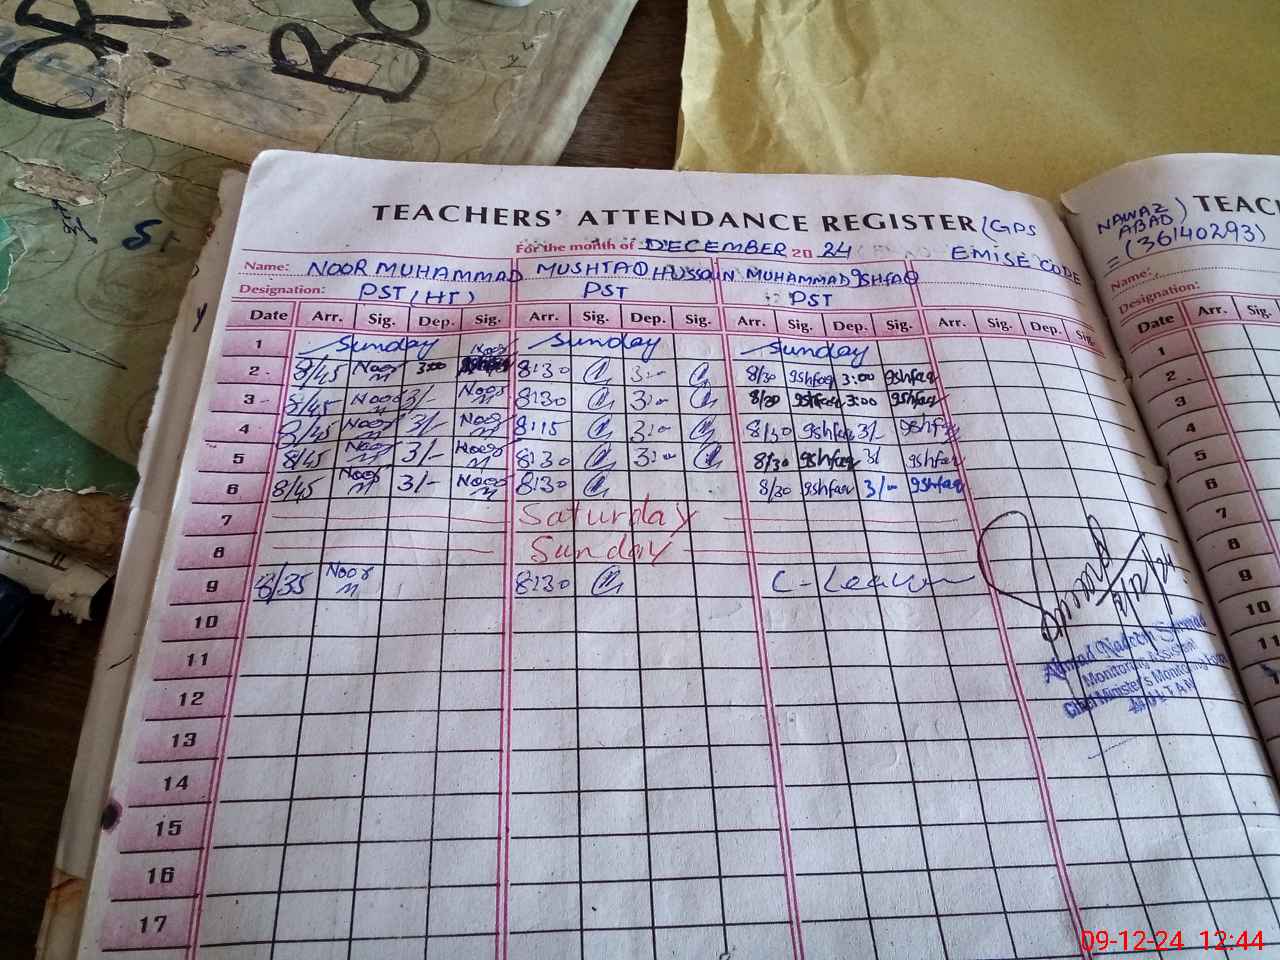 OR
Bo
TEACHERS' ATTENDANCE REGISTER (GPS NAWAZ ABAD)
For the month of DECEMBER 20 24 EMISE CODE = (36140293)
Name: NOOR MUHAMMAD MUSHTAQ HUSSAIN MUHAMMAD ISHFAQ
Designation: PST (HT) PST PST
Date Arr. Sig. Dep. Sig. Arr. Sig. Dep. Sig. Arr. Sig. Dep. Sig. Arr. Sig. Dep. Sig.
1 Sunday Sunday Sunday
2 8/45 Noor M 3:00 Noor 8:30 3:00 8/30 Ishfaq 3:00 Ishfaq
3 8/45 Noor M 3/- Noor M 8:30 3:00 8/30 Ishfaq 3:00 Ishfaq
4 8/45 Noor M 3/- Noor M 8:15 3:00 8/30 Ishfaq 3/- Ishfaq
5 8/45 Noor M 3/- Noor M 8:30 3:00 8/30 Ishfaq 3/ Ishfaq
6 8/45 Noor M 3/- Noor M 8:30 8/30 Ishfaq 3/- Ishfaq
7 Saturday
8 Sunday
9 8/35 Noor M 8:30 C-Leave
10
11
12
13
14
15
16
17
Monitoring Assistant
Chief Minister's Monitoring
MULTAN
TEAC
Name:
Designation:
Date Arr. Sig.
1
2
3
4
5
6
7
8
9
10
11
09-12-24 12:44